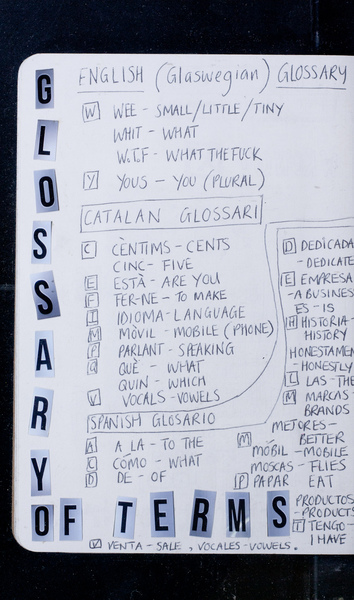 GLOSSARY
OF TERMS
ENGLISH (Glaswegian) GLOSSARY
W WEE - SMALL/LITTLE/TINY
WHIT - WHAT
W.T.F - WHAT THE FUCK
Y YOUS - YOU (PLURAL)
CATALAN GLOSSARI
C CÈNTIMS - CENTS
CINC - FIVE
E ESTÀ - ARE YOU
F FER-NE - TO MAKE
I IDIOMA - LANGUAGE
M MÒVIL - MOBILE (PHONE)
P PARLANT - SPEAKING
Q QUÈ - WHAT
QUIN - WHICH
V VOCALS - VOWELS
SPANISH GLOSARIO
A A LA - TO THE
C CÓMO - WHAT
D DE - OF
D DEDICADA
- DEDICATE
E EMPRESA
- A BUSINES
ES - IS
H HISTORIA -
HISTORY
HONESTAMEN
- HONESTLY
L LAS - THE
M MARCAS -
BRANDS
METORES -
M BETTER
MÓBIL - MOBILE
MOSCAS - FLIES
P PAPAR EAT
PRODUCTOS
- PRODUCTS
T TENGO -
I HAVE
V VENTA - SALE, VOCALES - VOWELS.